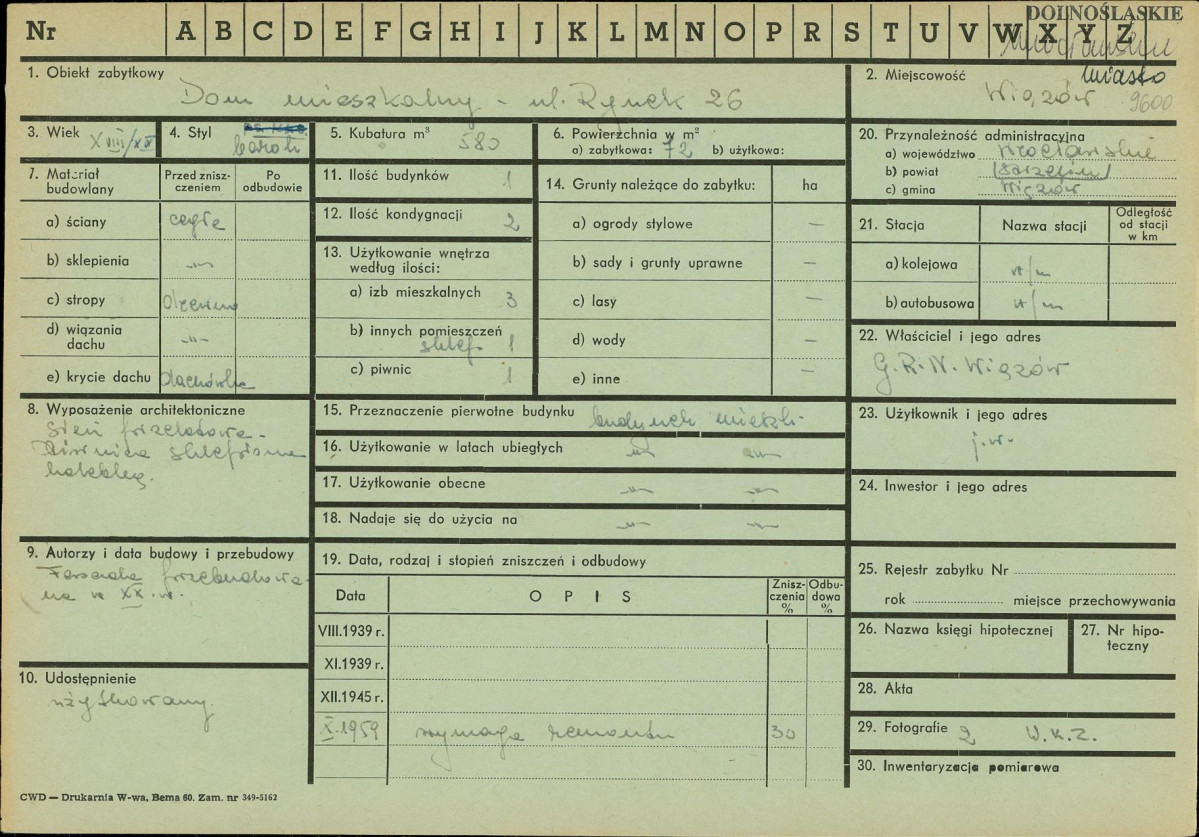 Nr A B C D E F G H I J K L M N O P R S T U V W X Y Z
DOLNOŚLĄSKIE
1. Obiekt zabytkowy
Dom mieszkalny - ul. Rynek 26
2. Miejscowość miasto
Wiązów 9600
3. Wiek XVIII/XX
4. Styl barok
5. Kubatura m³ 580
6. Powierzchnia w m²
a) zabytkowa: 72 b) użytkowa:
7. Materiał budowlany
Przed zniszczeniem
Po odbudowie
a) ściany cegła
b) sklepienia -"-
c) stropy drewno
d) wiązania dachu -"-
e) krycie dachu dachówka
8. Wyposażenie architektoniczne
Sień przelotowa.
Piwnica sklepiona
kolebką.
9. Autorzy i data budowy i przebudowy
Fasada przebudowa-
na w XX w.
10. Udostępnienie
użytkowany.
11. Ilość budynków 1
12. Ilość kondygnacji 2
13. Użytkowanie wnętrza
według ilości:
a) izb mieszkalnych 3
b) innych pomieszczeń
sklep 1
c) piwnic 1
14. Grunty należące do zabytku: ha
a) ogrody stylowe —
b) sady i grunty uprawne —
c) lasy —
d) wody —
e) inne —
15. Przeznaczenie pierwotne budynku budynek mieszk.
16. Użytkowanie w latach ubiegłych -"- -"-
17. Użytkowanie obecne -"- -"-
18. Nadaje się do użycia na -"- -"-
19. Data, rodzaj i stopień zniszczeń i odbudowy
Data OPIS Zniszczenia % Odbudowa %
VIII.1939 r.
XI.1939 r.
XII.1945 r.
X.1959 wymaga remontu 30
20. Przynależność administracyjna
a) województwo Wrocławskie
b) powiat
c) gmina Wiązów
21. Stacja Nazwa stacji Odległość od stacji w km
a) kolejowa n/m
b) autobusowa n/m
22. Właściciel i jego adres
G.R.N. Wiązów
23. Użytkownik i jego adres
j.w.
24. Inwestor i jego adres
25. Rejestr zabytku Nr
rok miejsce przechowywania
26. Nazwa księgi hipotecznej
27. Nr hipoteczny
28. Akta
29. Fotografie 2 W.K.Z.
30. Inwentaryzacja pomiarowa
CWD — Drukarnia W-wa, Bema 60. Zam. nr 349-5162